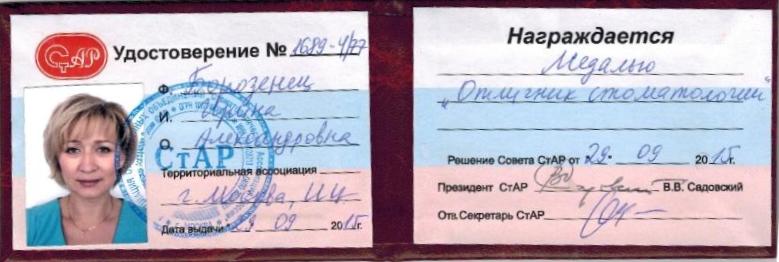 СтАР
Удостоверение № 1689-4/77
Ф. Борозенец
И. Ирина
О. Александровна
СтАР
Территориальная ассоциация
г. Москва, ИЦ
Дата выдачи 29 09 2015г.
Награждается
Медалью
„Отличник стоматологии"
Решение Совета СтАР от 29. 09 2015г.
Президент СтАР В.В. Садовский
Отв.Секретарь СтАР